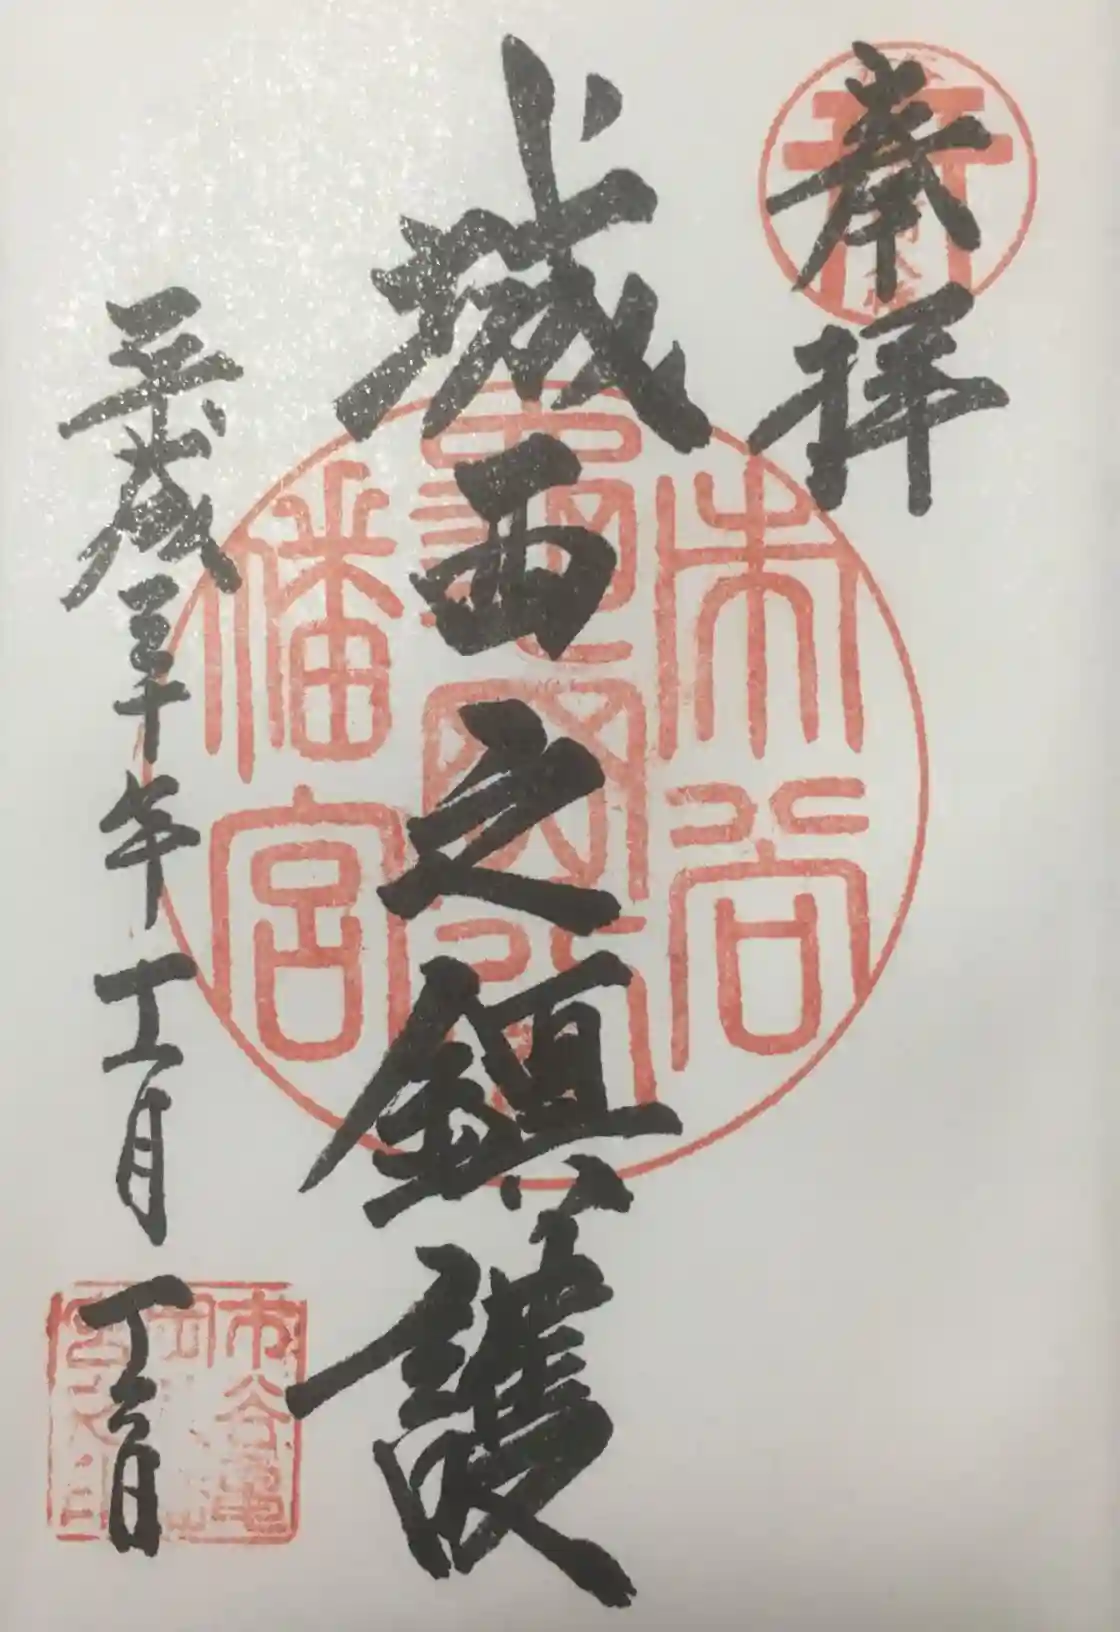 奉拝
城西之鎮護
平成三十年十一月
市谷
亀岡八
幡宮
市谷亀
岡
宮之印